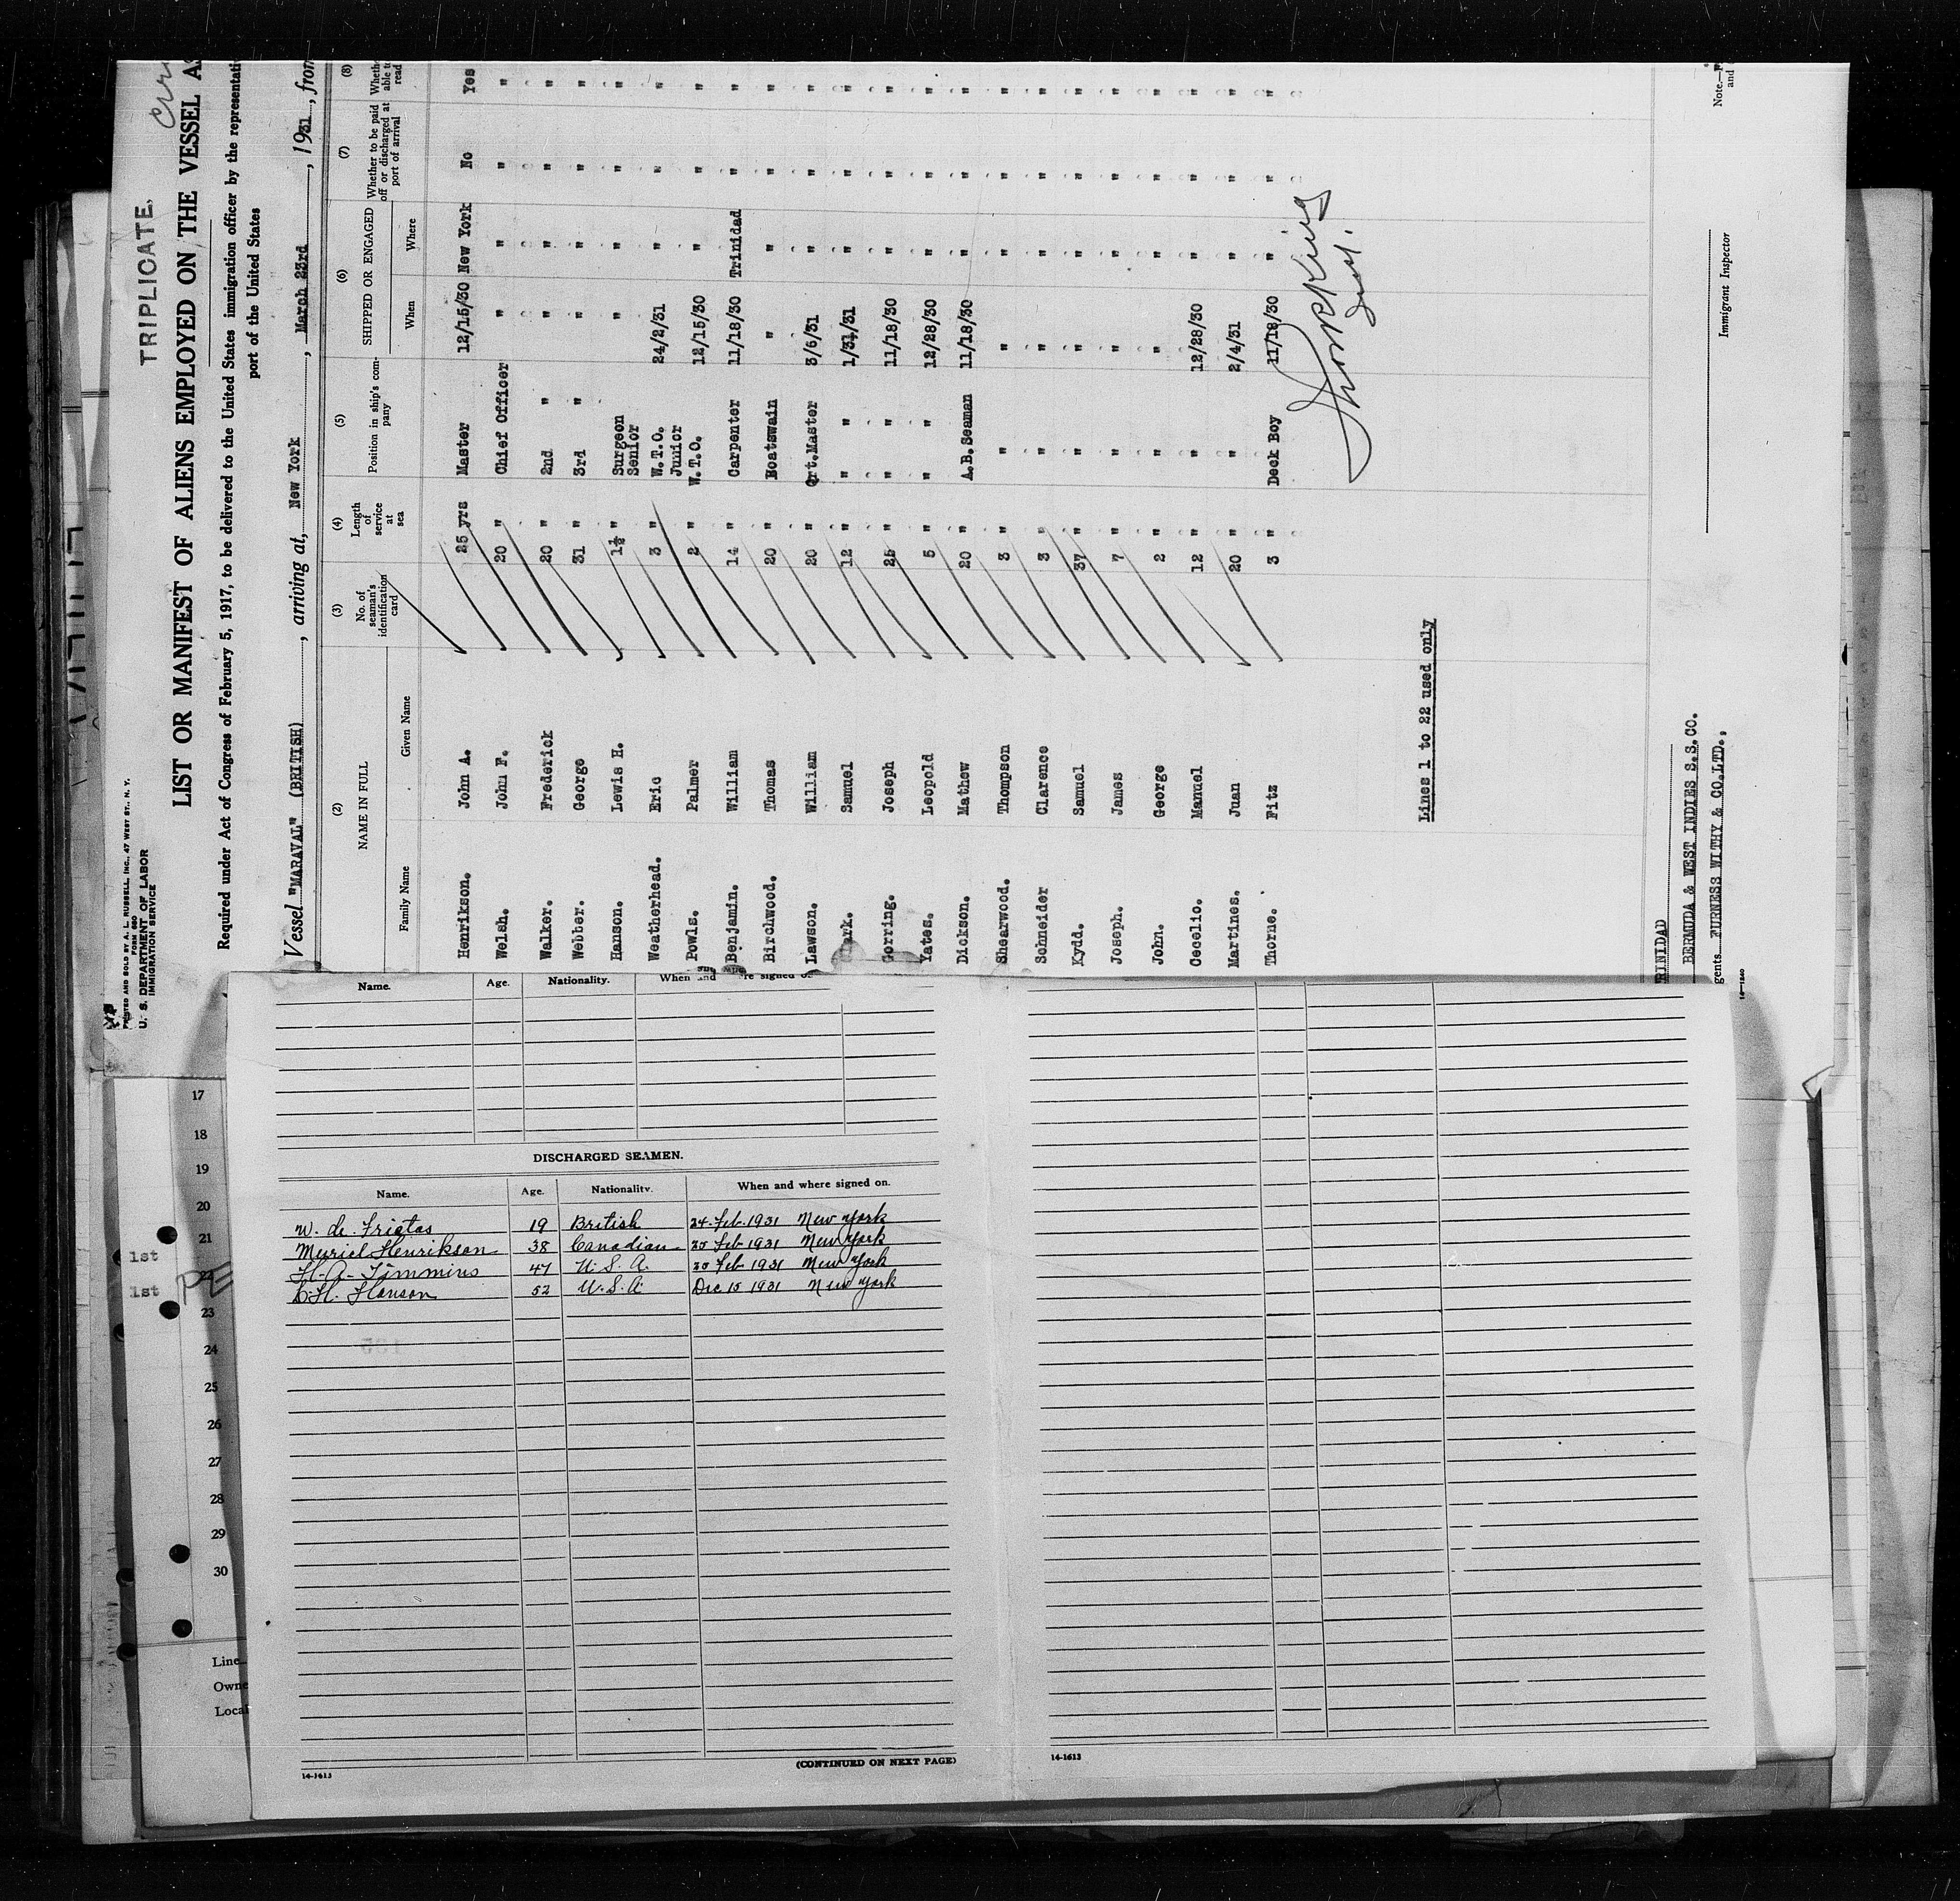 TRIPLICATE.
PRINTED AND SOLD BY A. L. RUSSELL, INC., 47 WEST ST., N. Y.
FORM 680
U. S. DEPARTMENT OF LABOR
IMMIGRATION SERVICE
LIST OR MANIFEST OF ALIENS EMPLOYED ON THE VESSEL AS
Required under Act of Congress of February 5, 1917, to be delivered to the United States immigration officer by the representati
port of the United States
Vessel "MARAVAL" (BRITISH), arriving at, New York, March 23rd, 1931, from
(2) (3) (4) (5) (6) (7) (8)
NAME IN FULL No. of seaman's identification card Length of service at sea Position in ship's company SHIPPED OR ENGAGED Whether to be paid off or discharged at port of arrival Wheth able t read
Family Name Given Name When Where
Henrikson. John A. 25 yrs Master 12/15/30 New York No Yes
Welsh. John F. 20 " Chief Officer " " " "
Walker. Frederick 20 " 2nd " " " " "
Webber. George 31 " 3rd " " " " "
Hanson. Lewis H. 1½ " Surgeon " " " "
Weatherhead. Eric 3 " Senior W.T.O. 24/2/31 " " "
Powls. Palmer 2 " Junior W.T.O. 12/15/30 " " "
Benjamin. William 14 " Carpenter 11/18/30 Trinidad " "
Birchwood. Thomas 20 " Boatswain " " " "
Lawson. William 20 " Qrt.Master 3/6/31 " " "
ark. Samuel 12 " " " 1/31/31 " " "
Gorring. Joseph 25 " " " 11/18/30 " " "
Yates. Leopold 5 " " " 12/28/30 " " "
Dickson. Mathew 20 " A.B.Seaman 11/18/30 " " "
Shearwood. Thompson 3 " " " " " "
Schneider Clarence 3 " " " " " "
Kydd. Samuel 37 " " " " " "
Joseph. James 7 " " " " " "
John. George 2 " " " " " "
Cecelio. Manuel 12 " " 12/28/30 " " "
Martines. Juan 20 " " 2/4/31 " " "
Thorne. Fitz 3 " Deck Boy 11/18/30 " " "
Lines 1 to 22 used only
RINIDAD
BERMUDA & WEST INDIES S.S.CO.
gents FURNESS WITHY & CO.LTD.,
Immigrant Inspector
Note—F
and
14—1240
Name. Age. Nationality. When and where signed on.
DISCHARGED SEAMEN.
Name. Age. Nationality. When and where signed on.
W. de Friatas 19 British 24 Feb. 1931 New York
Muriel Henrikson 38 Canadian 20 Feb 1931 New York
H. A. Timmins 47 U.S.A. 20 Feb 1931 New York
L. H. Hanson 52 U.S.A. Dec 15 1931 New York
(CONTINUED ON NEXT PAGE)
14-1613
14-1613
17
18
19
20
21
1st
22
1st
PE
23
24
25
26
27
28
29
30
Line
Owne
Local